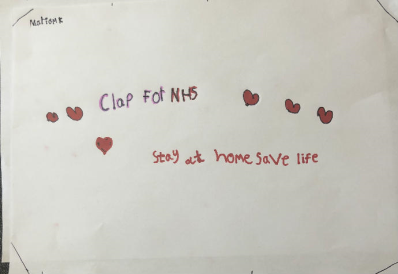 Clap For NHS
Stay at home save life